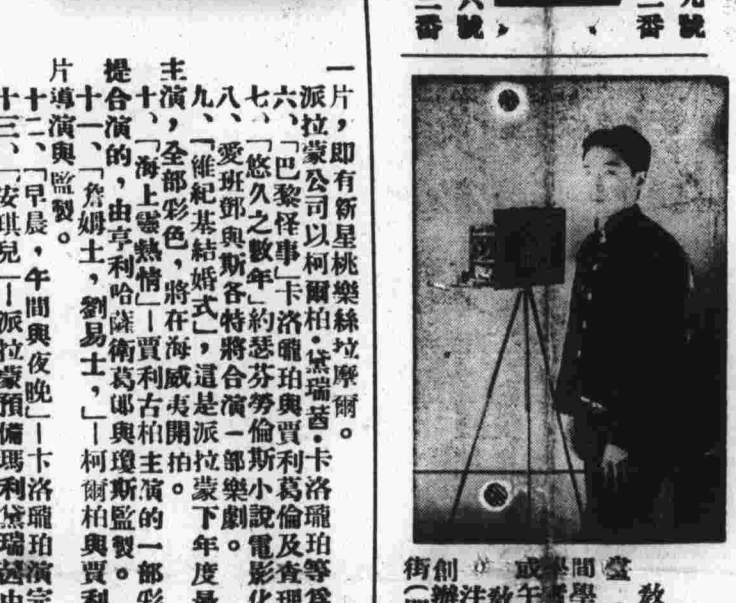 號
二番
號
二番
一片，即有新星桃樂絲拉摩爾。
派拉蒙公司以柯爾柏·黛瑞茜·卡洛瓏珀等為
六、「巴黎怪事」卡洛瓏珀與賈利葛倫及查理
七、「悠久之數年」約瑟芬勞倫斯小說電影化
八、愛班鄧與斯各特將合演一部樂劇。
九、「維紀基結婚式」，這是派拉蒙下年度最
主演，全部彩色，將在海威夷開拍。
十、「海上靈熱情」—賈利古柏主演的一部彩
提合演的，由亨利哈薩衛葛鄔與瓊斯監製。
十一、「詹姆士，劉易士，」—柯爾柏與賈利
片導演與監製。
十二、「早晨，午間與夜晚」—卡洛瓏珀演完
十三、「安琪兒」—派拉蒙預備瑪利黛瑞茜由
敎
堂
間
學
或午
注敎
創辦
街（